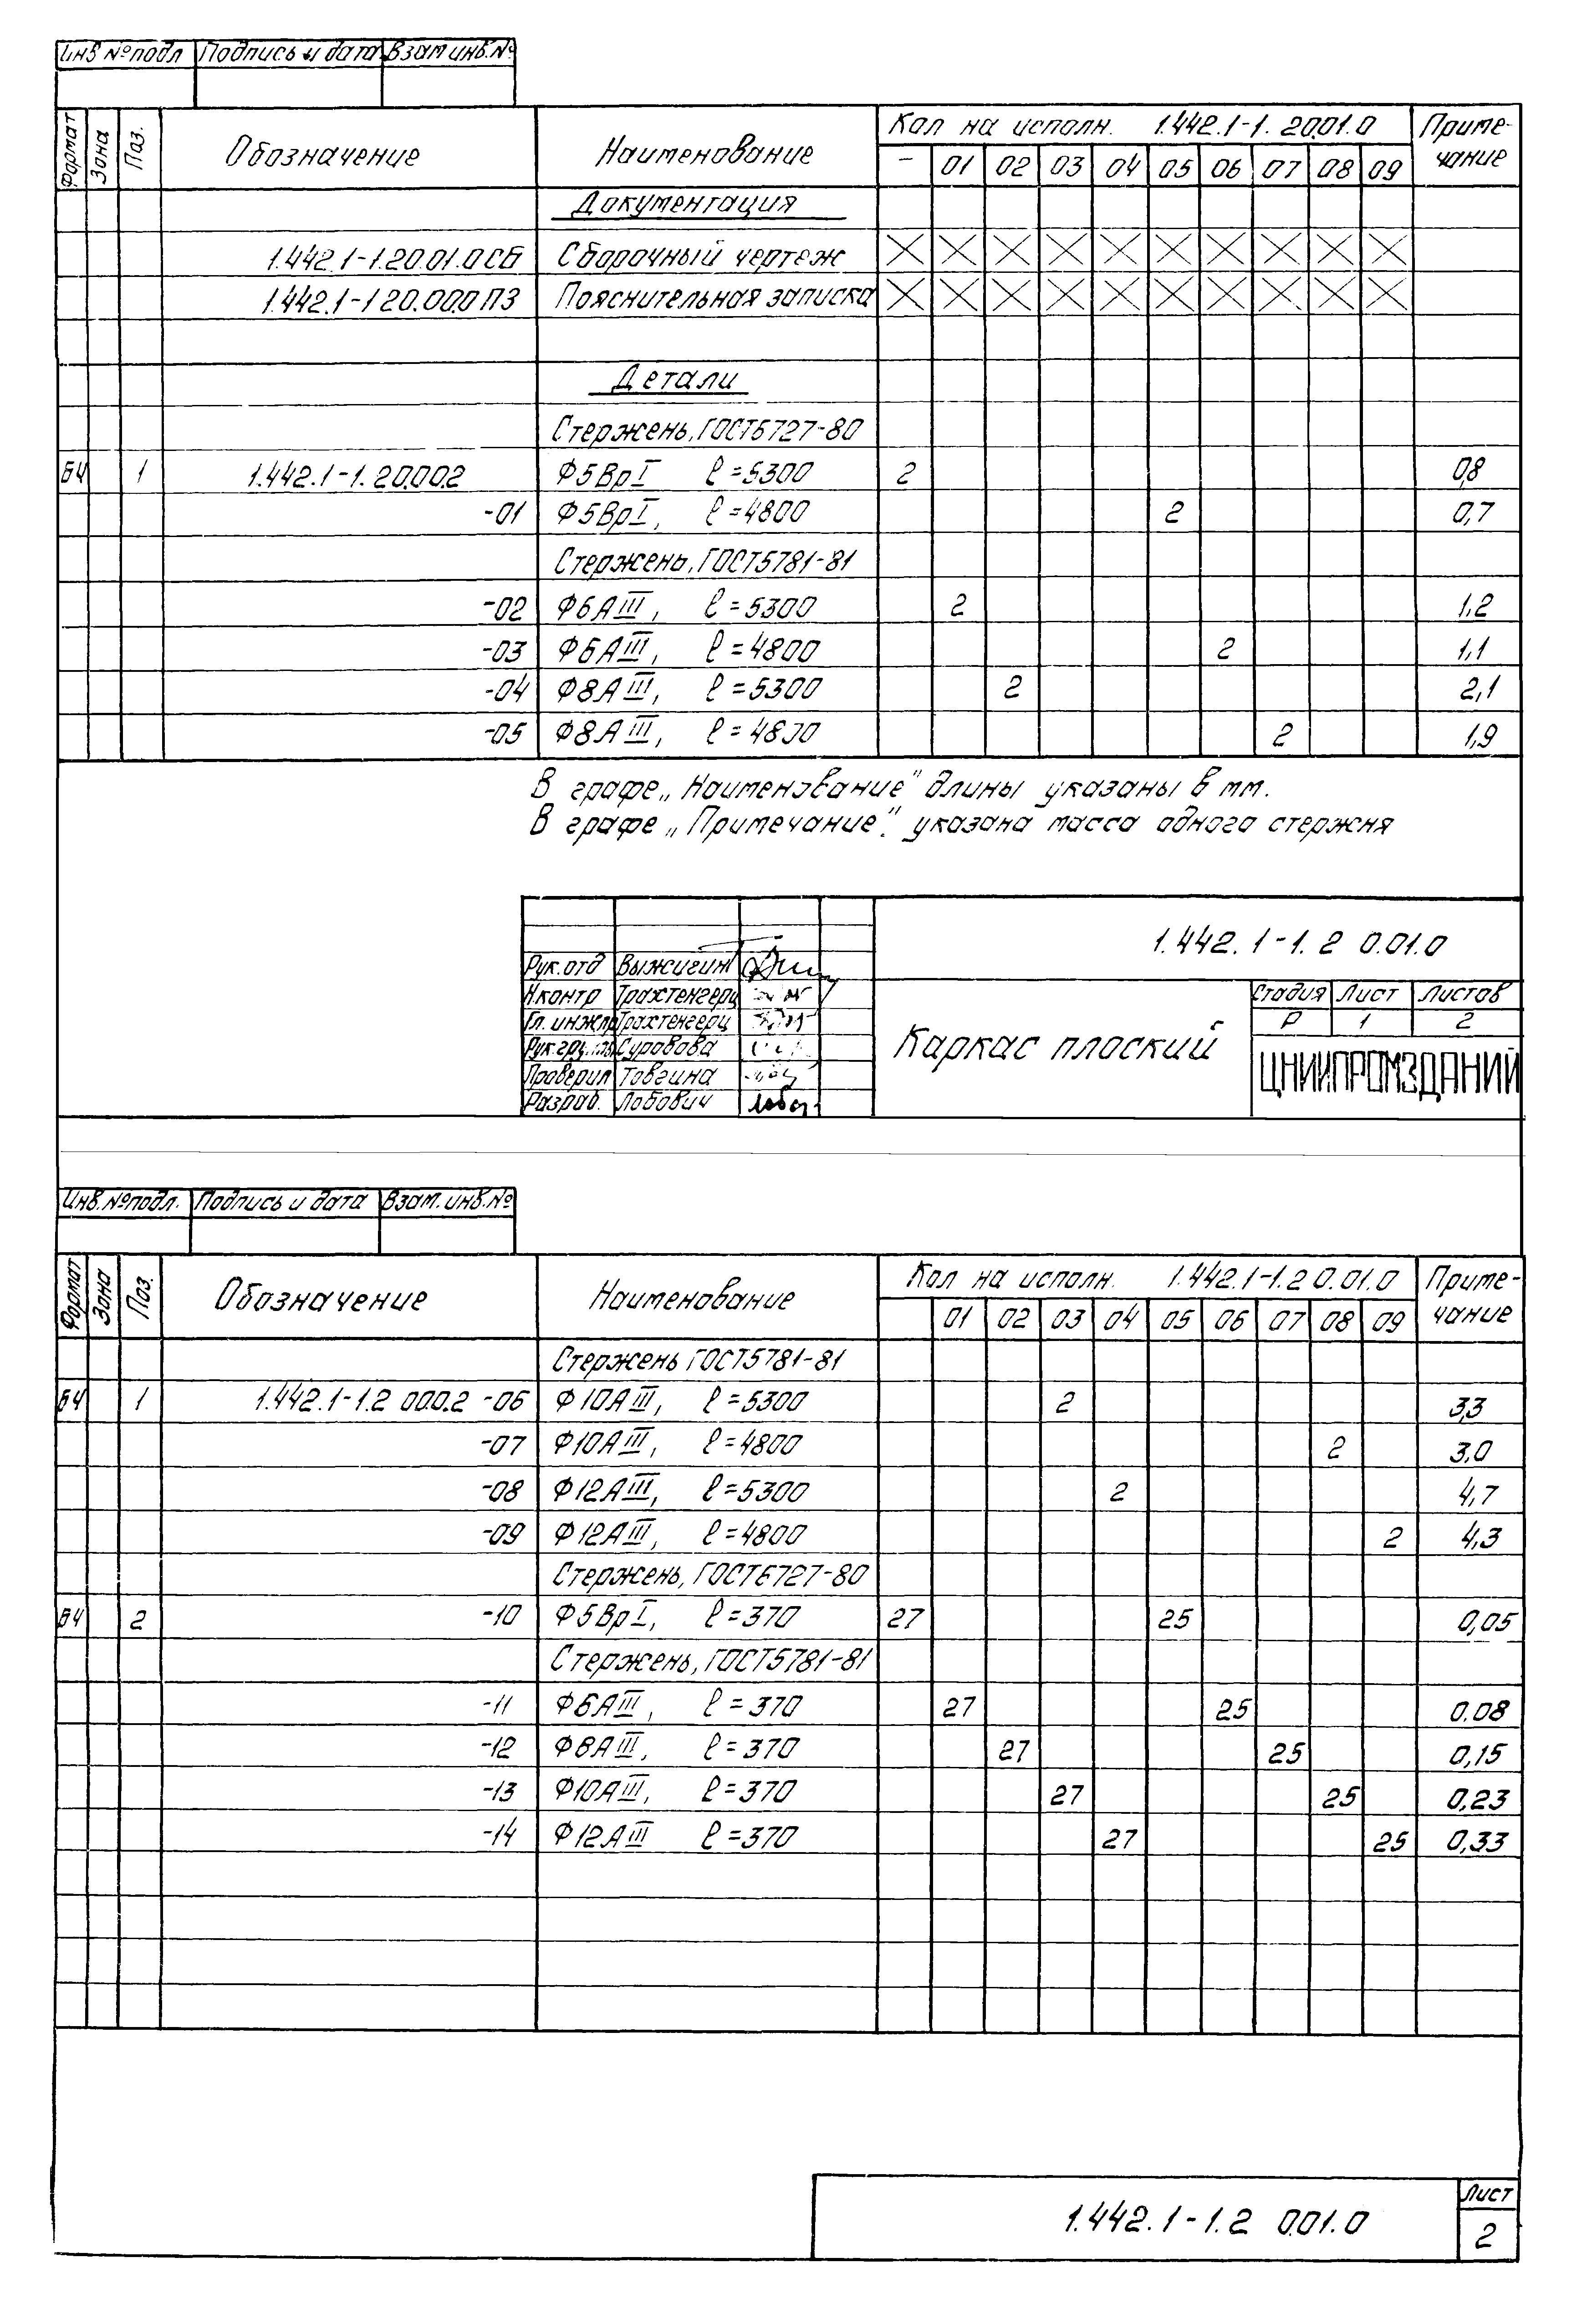 Инв № подл Подпись и дата Взам инв. №
Формат Зона Поз. Обозначение Наименование Кол на исполн. 1.442.1-1. 20.01.0 Приме-
чание
– 01 02 03 04 05 06 07 08 09
Документация
1.442.1-1.20.01.0СБ Сборочный чертеж
1.442.1-1 20.00.0 ПЗ Пояснительная записка
Детали
Стержень, ГОСТ6727-80
БЧ 1 1.442.1-1. 20.00.2 Ф5ВрI ℓ=5300 2 0,8
-01 Ф5ВрI, ℓ=4800 2 0,7
Стержень, ГОСТ5781-81
-02 Ф6АIII, ℓ=5300 2 1,2
-03 Ф6АIII, ℓ=4800 2 1,1
-04 Ф8АIII, ℓ=5300 2 2,1
-05 Ф8АIII, ℓ=4800 2 1,9
В графе „Наименование" длины указаны в мм.
В графе „Примечание". указана масса одного стержня
1.442.1-1.2 0.01.0
Рук.отд Выжигин
Н.контр Трахтенгерц
Гл.инж.пр Трахтенгерц
Рук.гр. Суровова
Проверил Товгина
Разраб. Лобович
Каркас плоский
Стадия Лист Листов
Р 1 2
ЦНИИПРОМЗДАНИЙ
Инв. № подл. Подпись и дата Взам. инв. №
Формат Зона Поз. Обозначение Наименование Кол на исполн. 1.442.1-1.2 0.01.0 Приме-
чание
01 02 03 04 05 06 07 08 09
Стержень ГОСТ5781-81
БЧ 1 1.442.1-1.2 00.0.2 -06 Ф10АIII, ℓ=5300 2 3,3
-07 Ф10АIII, ℓ=4800 2 3,0
-08 Ф12АIII, ℓ=5300 2 4,7
-09 Ф12АIII, ℓ=4800 2 4,3
Стержень, ГОСТ6727-80
БЧ 2 -10 Ф5ВрI, ℓ=370 27 25 0,05
Стержень, ГОСТ5781-81
-11 Ф6АIII, ℓ=370 27 25 0.08
-12 Ф8АIII, ℓ=370 27 25 0,15
-13 Ф10АIII, ℓ=370 27 25 0,23
-14 Ф12АIII ℓ=370 27 25 0,33
1.442.1-1.2 0.01.0
Лист
2